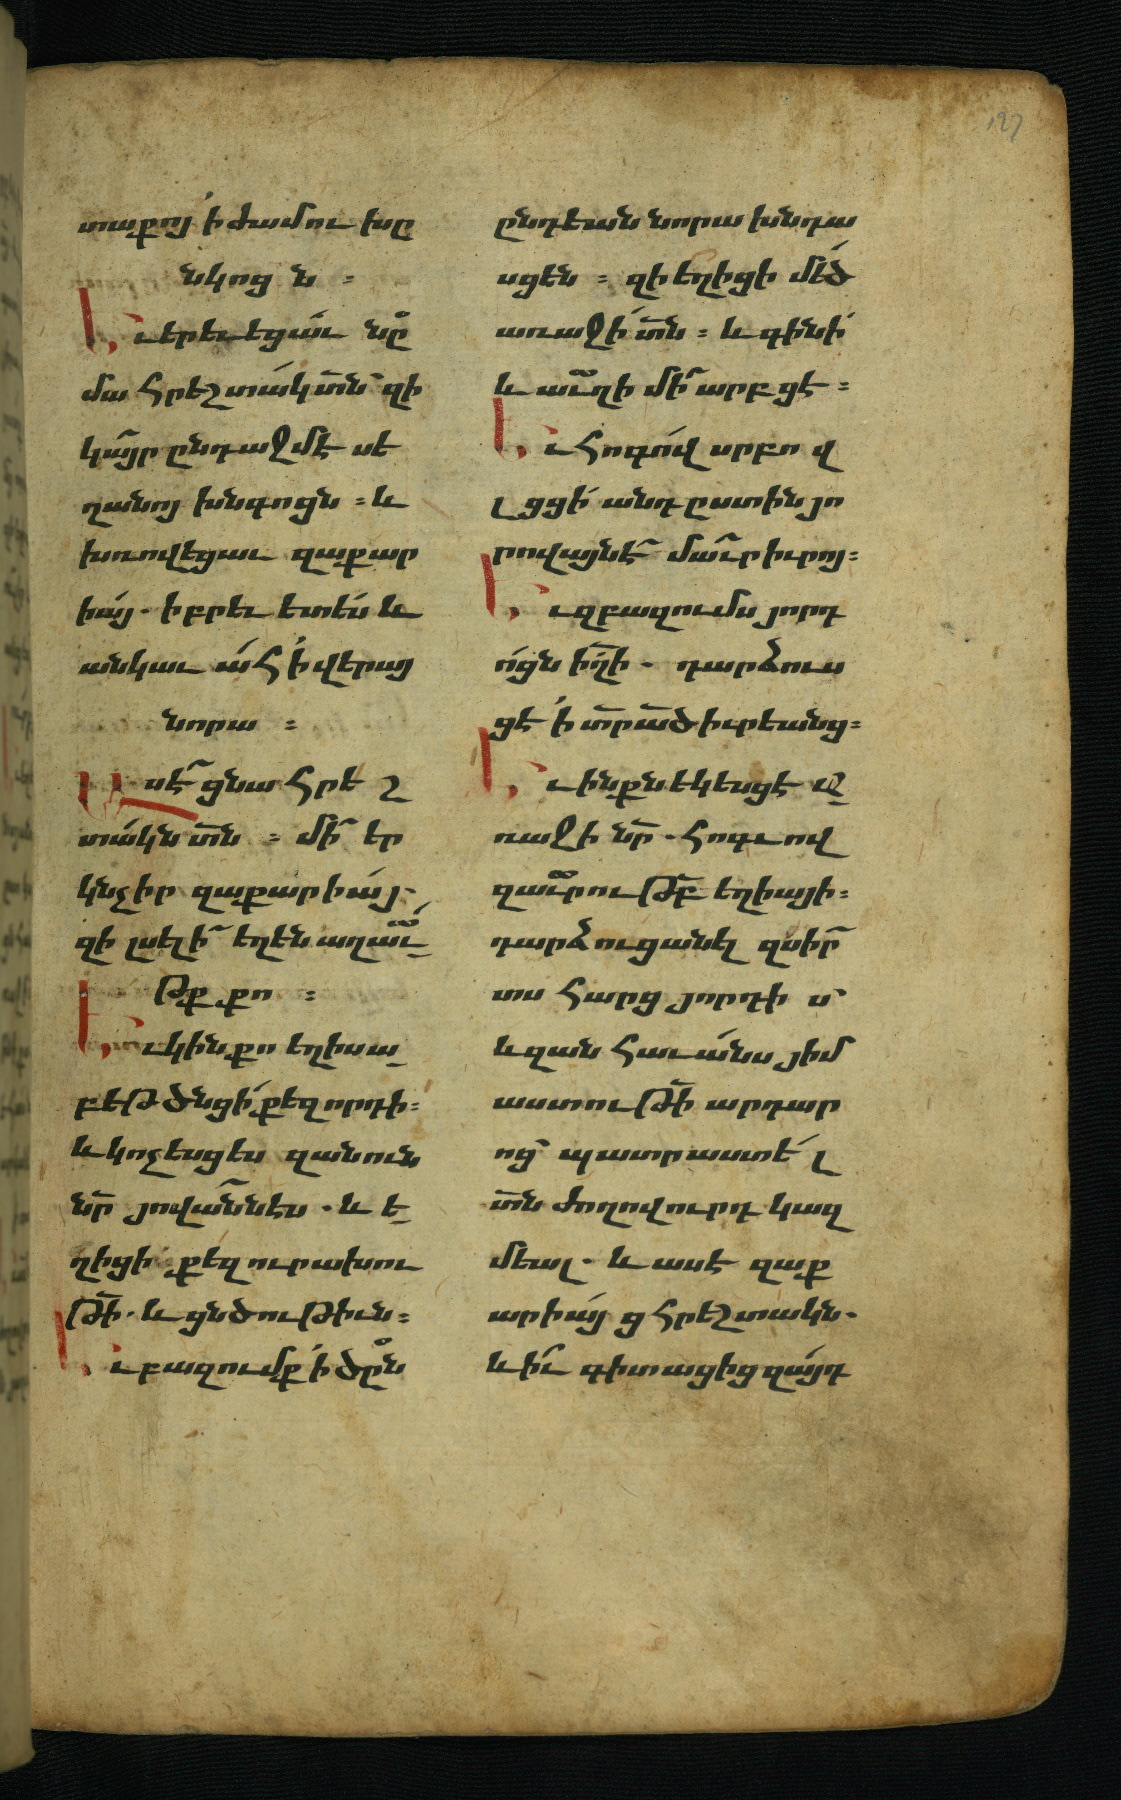 127
տաքոյ՛ ի ժամու խը
նկոց ն :
Եւ երեւեցա՛ւ նը՞
մա հրեշտա՛կ տն՟ զի
կա՟յր ընդ աջմէ սե
ղանոյ խնգոցն : և
խռովեցաւ զաքար
իա՛յ . իբրեւ ետե՛ս և
անկաւ ա՛հ ի՛ վերայ
նորա :
Ասէ՟ ցնա հրե շ
տա՛կն տ՟ն : մի՟ եր
կնչիր զաքարիա՛յ .
զի լսելի՟ եղեն աղաւ՛
թք քո :
Եւ կին քո եղիսա
բեթ ծնցի՛ քեզ որդի :
և կոչեսցես զանուն
նր՟ յովա՟ննէս . և ե
ղիցի քեզ ուրախու
թի՟ . և ցնծութիւն :
Եւ բազումք ի՛ ծը՞ն
ընդեան նորա խնդա
սցեն : զի եղիցի մե՛ծ
առաջի՛ տ՟ն : և գինի՛
և աւղի մի՟ արբցէ :
Եւ հոգո՛վ սրբո վ
լցցի՛ անդ ըստին յո
րովայնէ՟ մաւ՟ր իւրոյ :
Եւ զբազումս յորդ
ո՛ցն ի՟ղի . դարձուս
ցէ ՛ի տ՟ր ա՟ծ իւրեանց :
Եւ ինքն եկեսցէ ա
ռաջի նր՟ . հոգւով
զաւ՟րութբ՟ եղիայի :
դարձուցանել զսիր՟
տս հարց յորդի ս՟
և զան հաւա՛նս յիմ
աստութի՟ արդար
ոց՟ պատրաստե՛ լ
տ՟ն ժողովուրդ կազ
մեալ . և ասէ զաք
արիա՛յ ց հրեշտակն .
և ի՟ւ գիտացից զա՛յդ